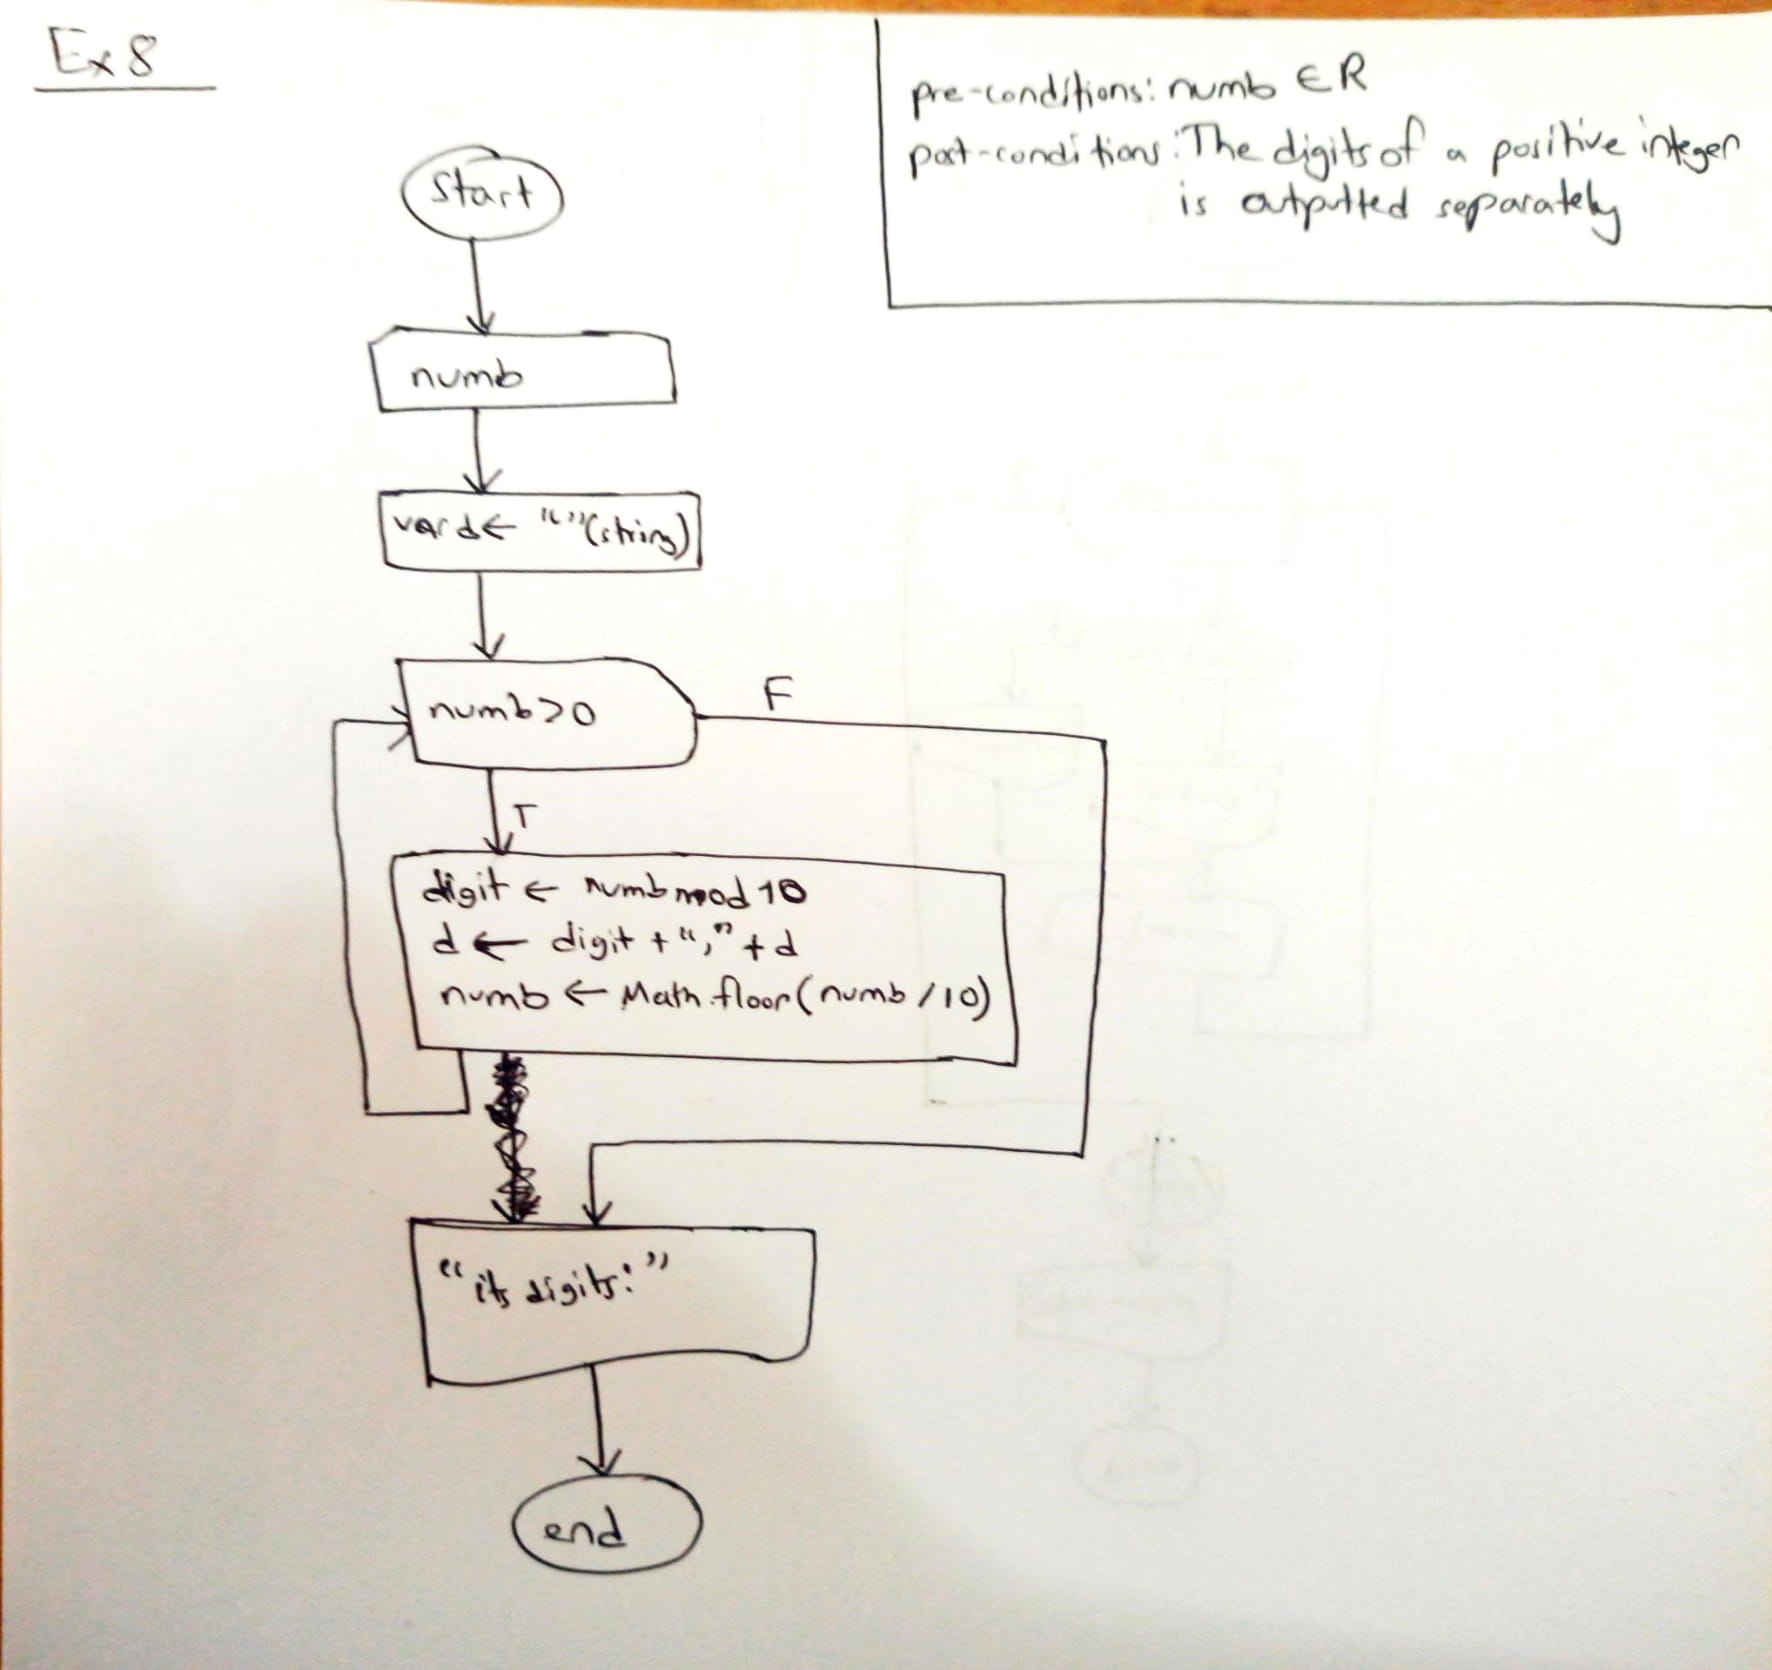 Ex 8
pre-conditions: numb ∈ R
post-conditions: The digits of a positive integer
is outputted separately
start
numb
var d ← “”(string)
numb>0
F
T
digit ← numb mod 10
d ← digit + “,” + d
numb ← Math.floor(numb /10)
“its digits:”
end